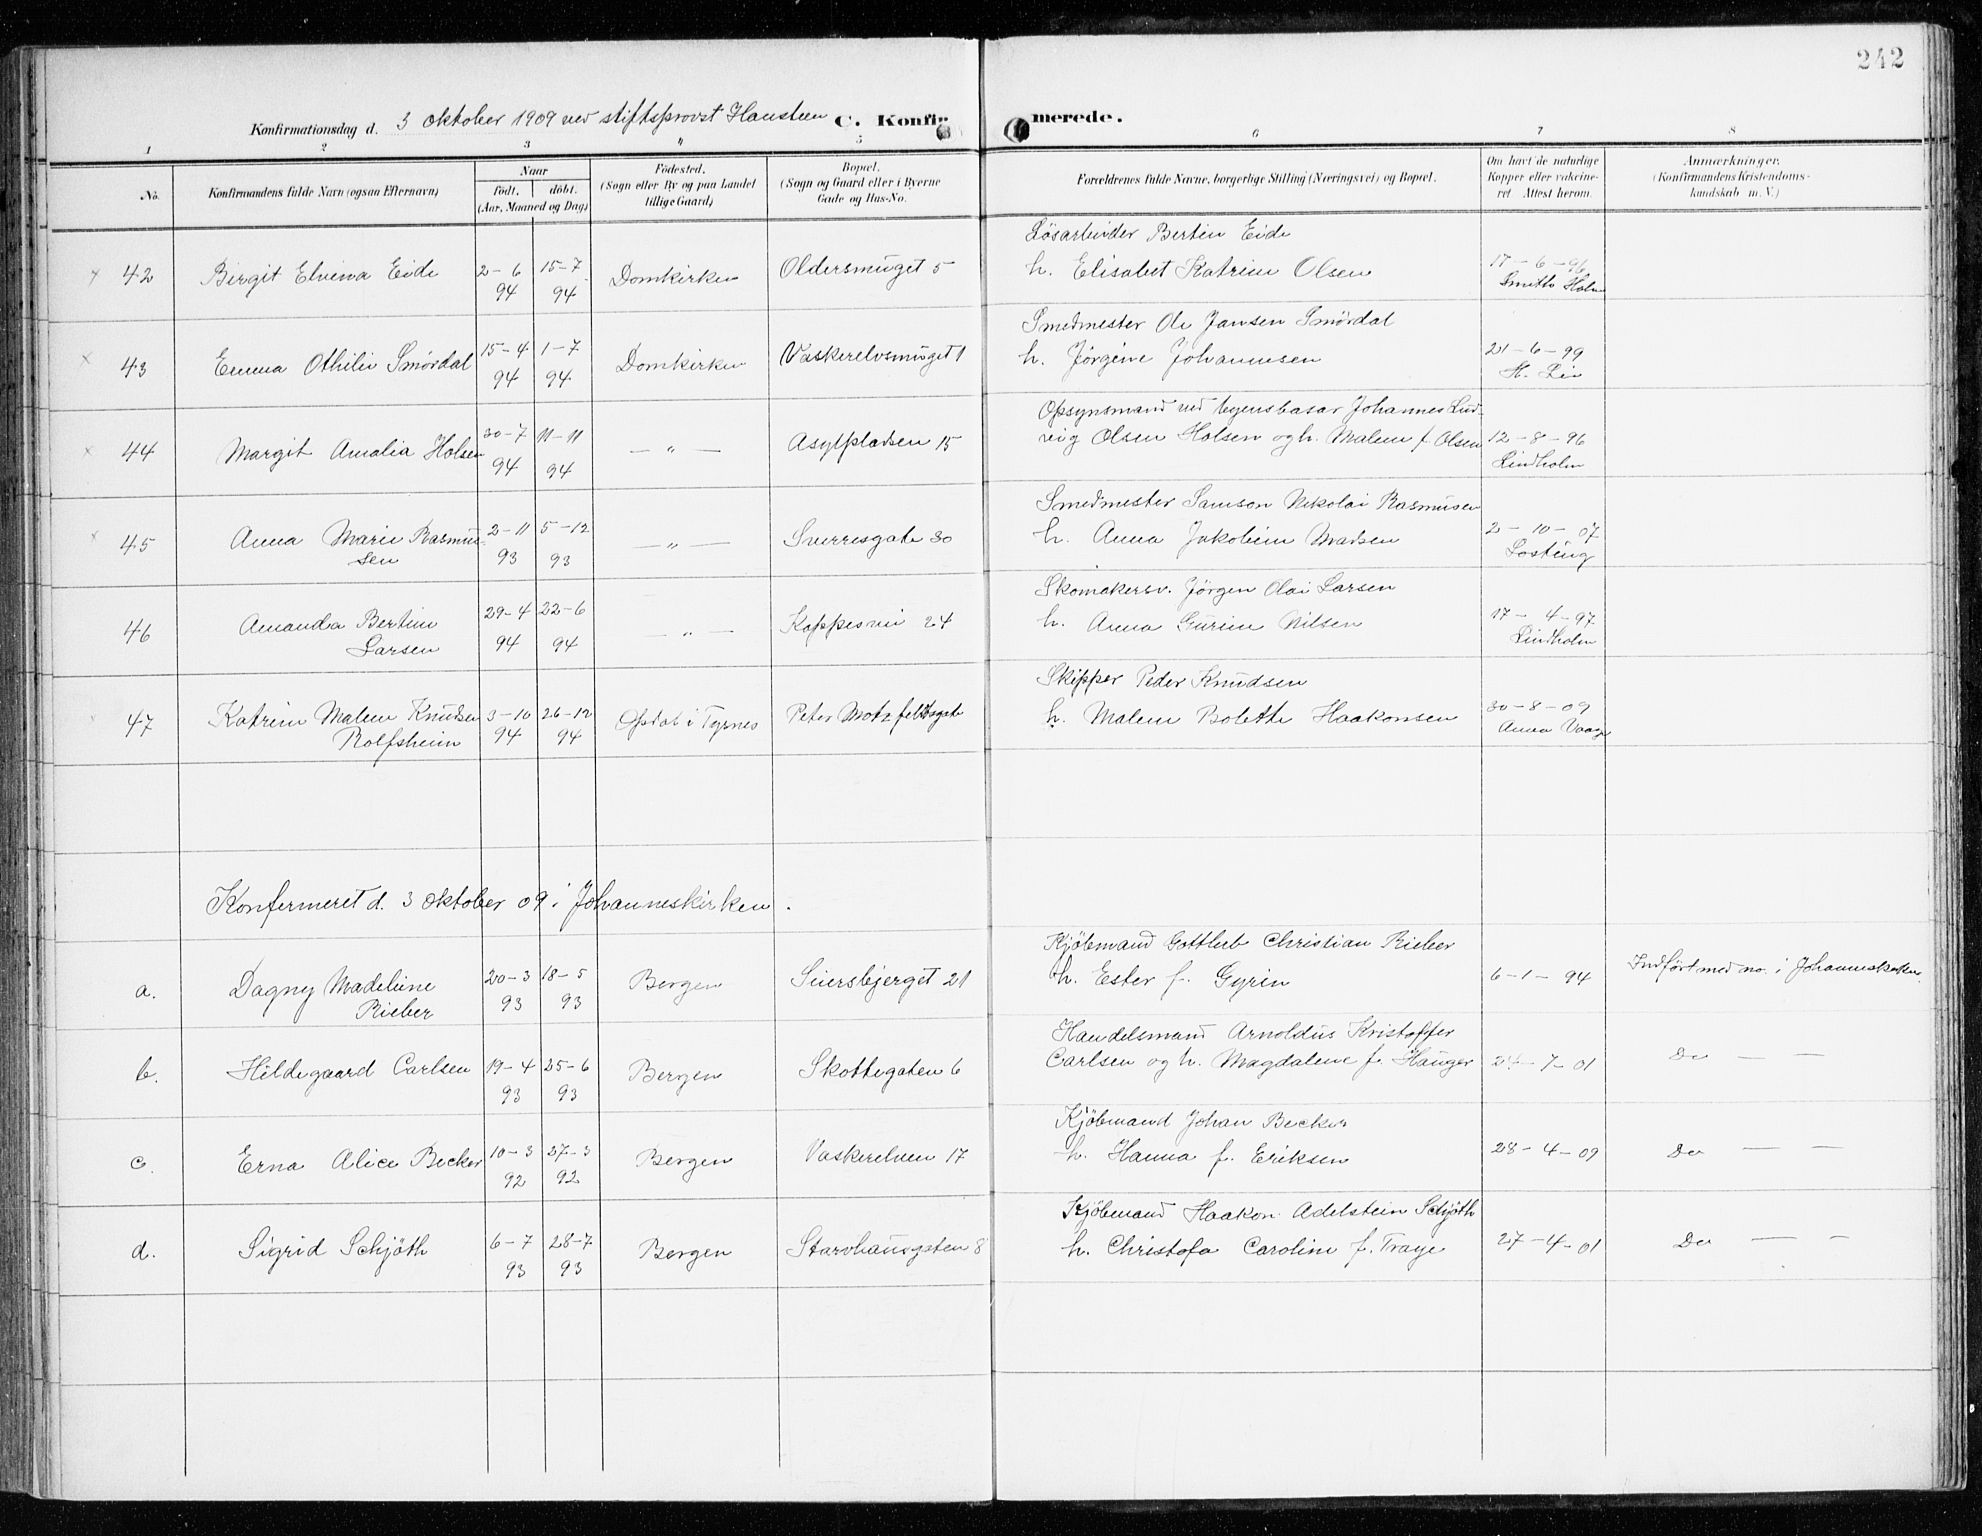 242
Konfirmationsdag d. 3 oktober 1909 ved stiftsprovst Hansteen C. Konfirmerede.
1 2 3 4 5 6 7 8
No. Konfirmandens fulde Navn (ogsaa Efternavn) Naar født, døbt. (Aar, Maaned og Dag) Fødested. (Sogn eller By og paa Landet tillige Gaard) Bopæl. (Sogn og Gaard eller i Byerne Gade og Hus-No. Forældrenes fulde Navne, borgerlige Stilling (Næringsvei) og Bopæl. Om havt de naturlige Kopper eller vakcineret. Attest herom. Anmærkninger. (Konfirmandens Kristendomskundskab m. V.)
Løsarbeider Bertin Eide
42 Birgit Elvina Eide 2-6 15-7 Domkirken Oldersmuget 5 h. Elisabet Katrine Olsen 17-6-96
94 94 Smith Holm
Smedmester Ole Jansen Smørdal
43 Emma Othilie Smørdal 15-4 1-7 Domkirken Vaskerelvsmuget 1 h. Jørgine Johannesen 21-6-99
94 94 H. Lie
Opsynsmand ved byens basar Johannes Lud-
44 Margit Amalia Holsen 30-7 11-11 — " — Asylpladsen 15 vig Olsen Holsen og h. Malene f. Olsen 12-8-96
94 94 Lindholm
Smedmester Samson Nikolai Rasmusen
45 Anna Marie Rasmus- 2-11 5-12 — " — Sverresgate 30 h. Anna Jakobine Madsen 2-10-07
sen 93 93 Losting
Skomakersv. Jörgen Olai Larsen
46 Amanda Bertine 29-4 22-6 — " — Kroppesvei 24 h. Anna Gurine Nilsen 17-4-97
Larsen 94 94 Lindholm
Skipper Peder Knudsen
47 Katrine Malene Knudsen 3-10 26-12 i Tysnes Peter Motzfeldtsgate h. Malene Bolette Haakonsen 30-8-09
Rolfsheim 94 94 Anna Vaage
Konfermeret d. 3 oktober 09 i Johanneskirken.
Kjöbmand Gottlieb Christian Rieber
a. Dagny Madeleine 20-3 18-5 Bergen Seiersbjerget 21 h. Ester f. Gyrin 6-1-94 Indført med no. i Johanneskirken.
Rieber 93 93
Handelsmand Arnoldus Kristoffer
b. Hildegaard Carlsen 19-4 25-6 Bergen Skottegaten 6 Carlsen og h. Magdalene f. Hauger 24-7-01 Do — —
93 93
Kjöbmand Johan Becker
c. Erna Alice Becker 10-3 27-3 Bergen Vaskerelven 17 h. Hanna f. Eriksen 28-4-09 Do — —
92 92
Kjöbmand Haakon Adelstein Schjöth
d. Sigrid Schjöth 6-7 28-7 Bergen Starvhausgaten 8 h. Christofa Caroline f. Traye 27-4-01 Do — —
93 93